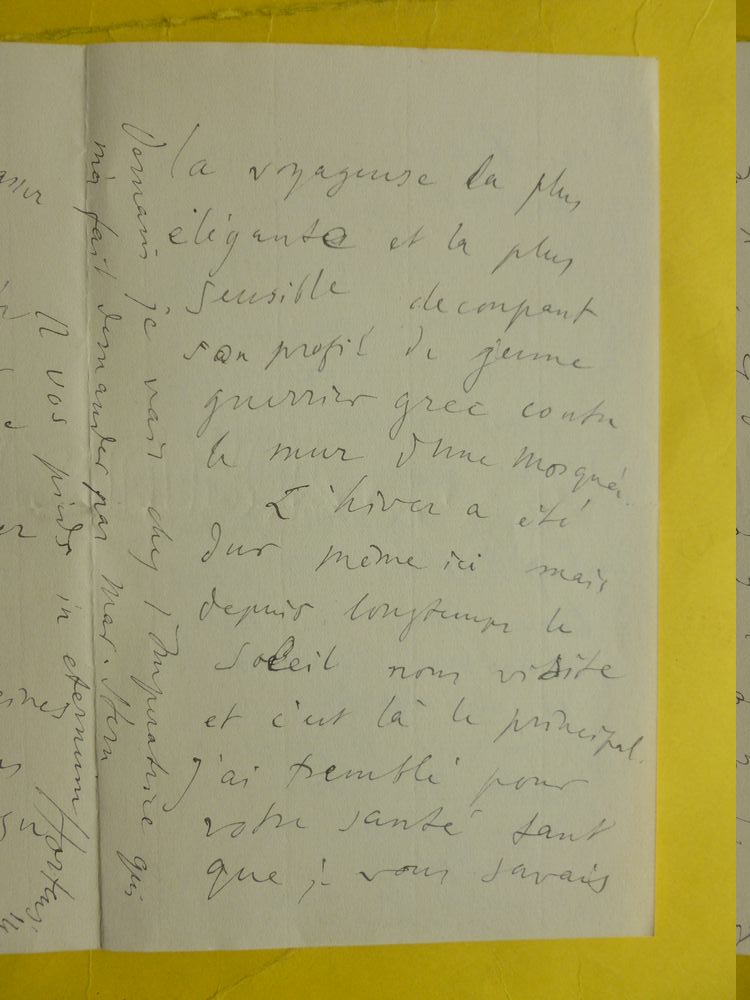 la voyageuse la plus
élégante et la plus
sensible decoupant
son profil de jeune
guerrier grec contre
le mur d'une mosquée
L'hiver a été
dur même ici mais
depuis longtemps le
soleil nous visite
et c'est là le principal.
J'ai tremblé pour
votre santé tant
que je vous savais
Demain je vais chez l'Impératrice qui
m'a fait demander par Mar. Stern
A vos pieds in eternum